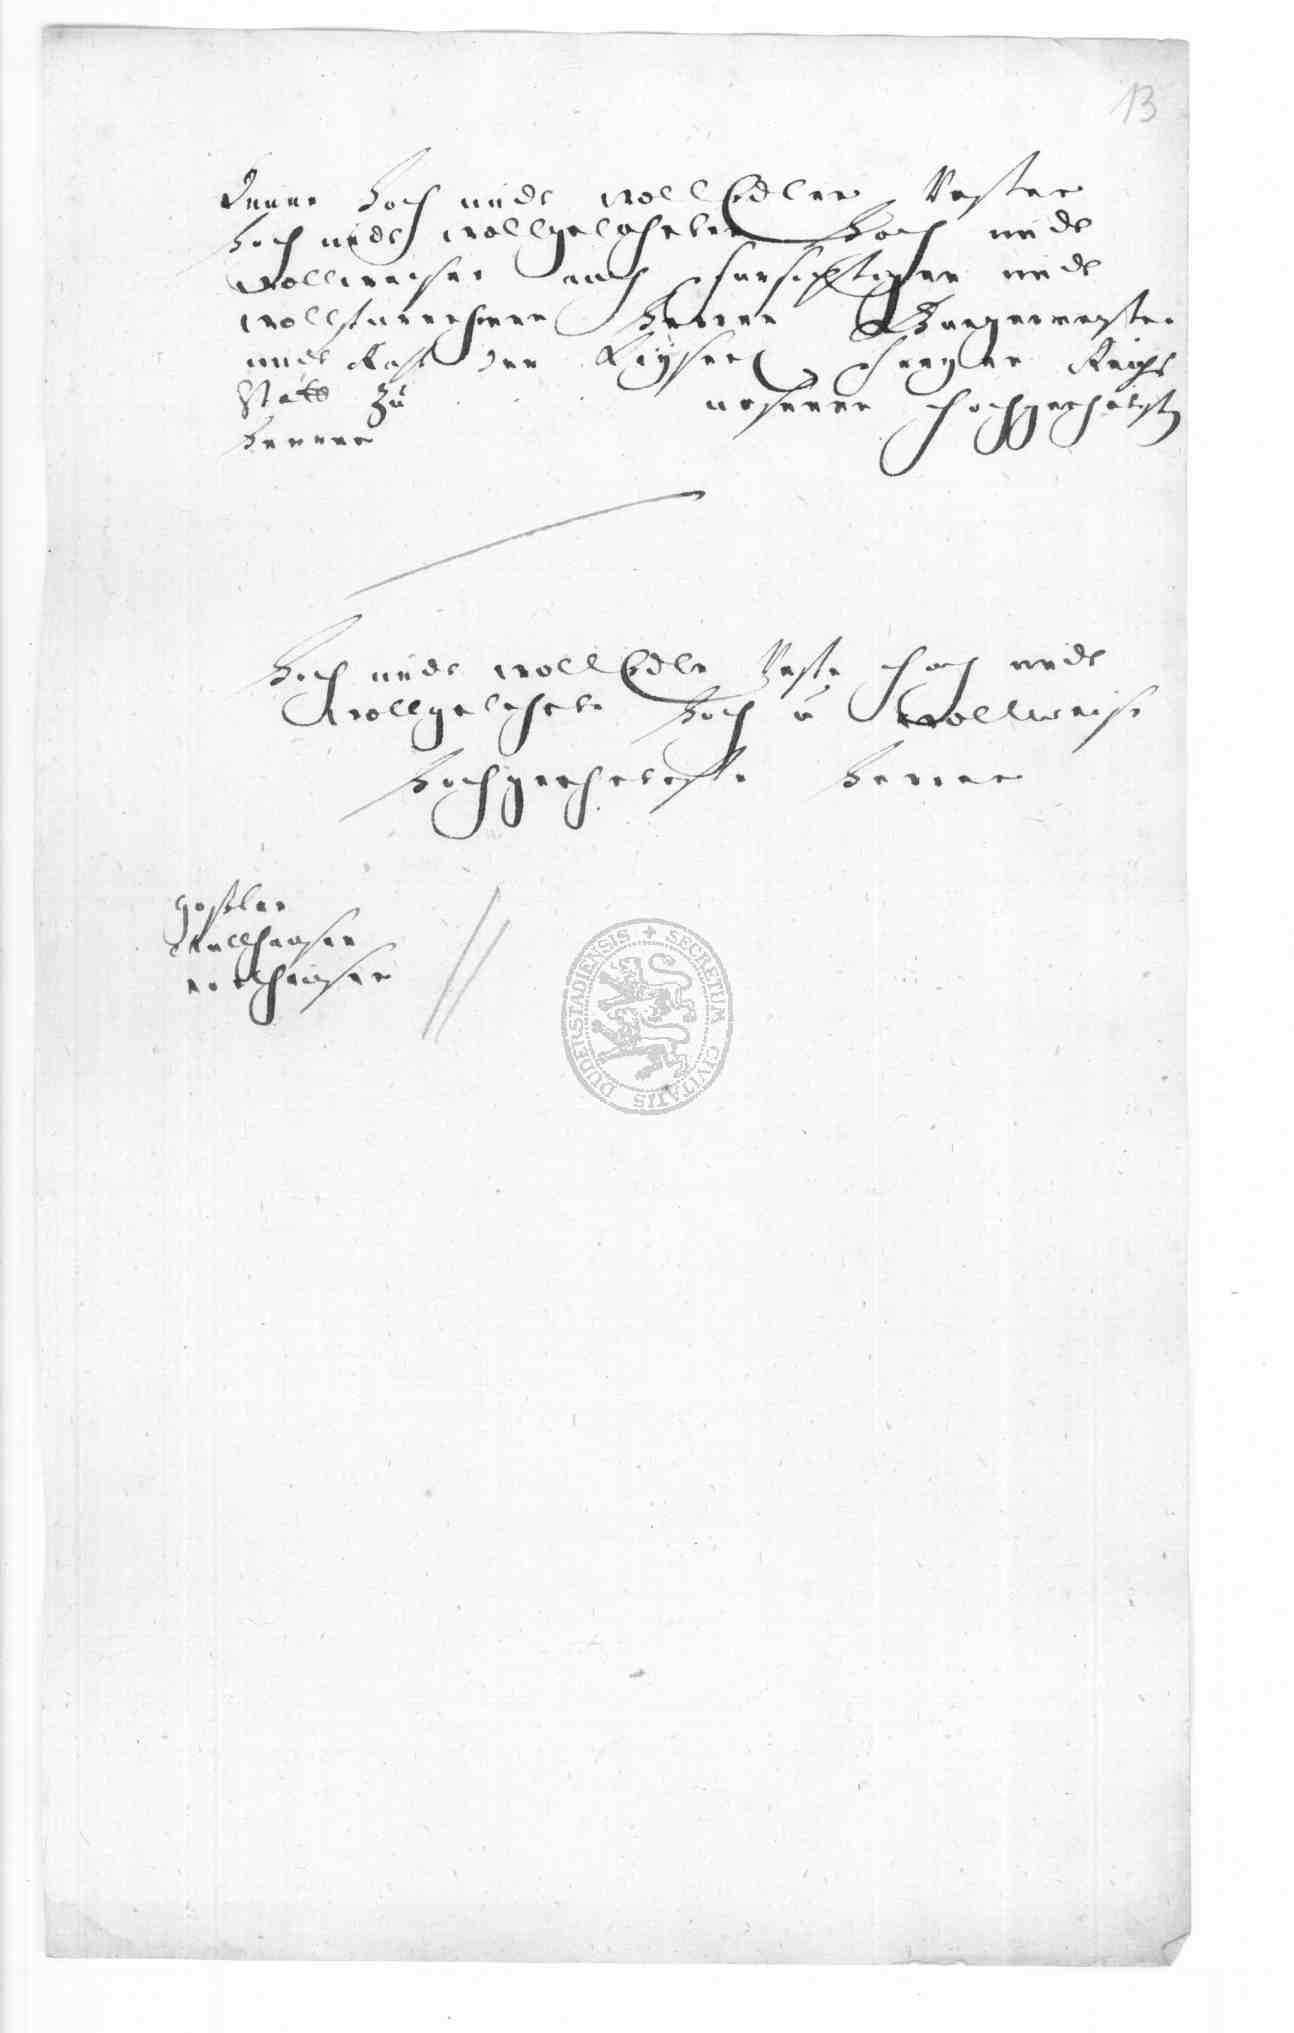 13
Denen Hoch undt woll Edlen Vesten
Hoch undt wollgelehrten Hoch undt
wollweisen auch fursichtigen undt
wollfurnehmen Herren Burgermeister
undt Raht der Kayser freyen Reichs
Statt zu unseren hochgeehrtst
Herren
Hoch undt woll Edle Veste hoch undt
wollgelehrte Hoch u wollweise
Hochgeehrteste Herren
Goslar
Mullhausen
Northausen
SECRETUM CIVITATIS DUDERSTADIENSIS